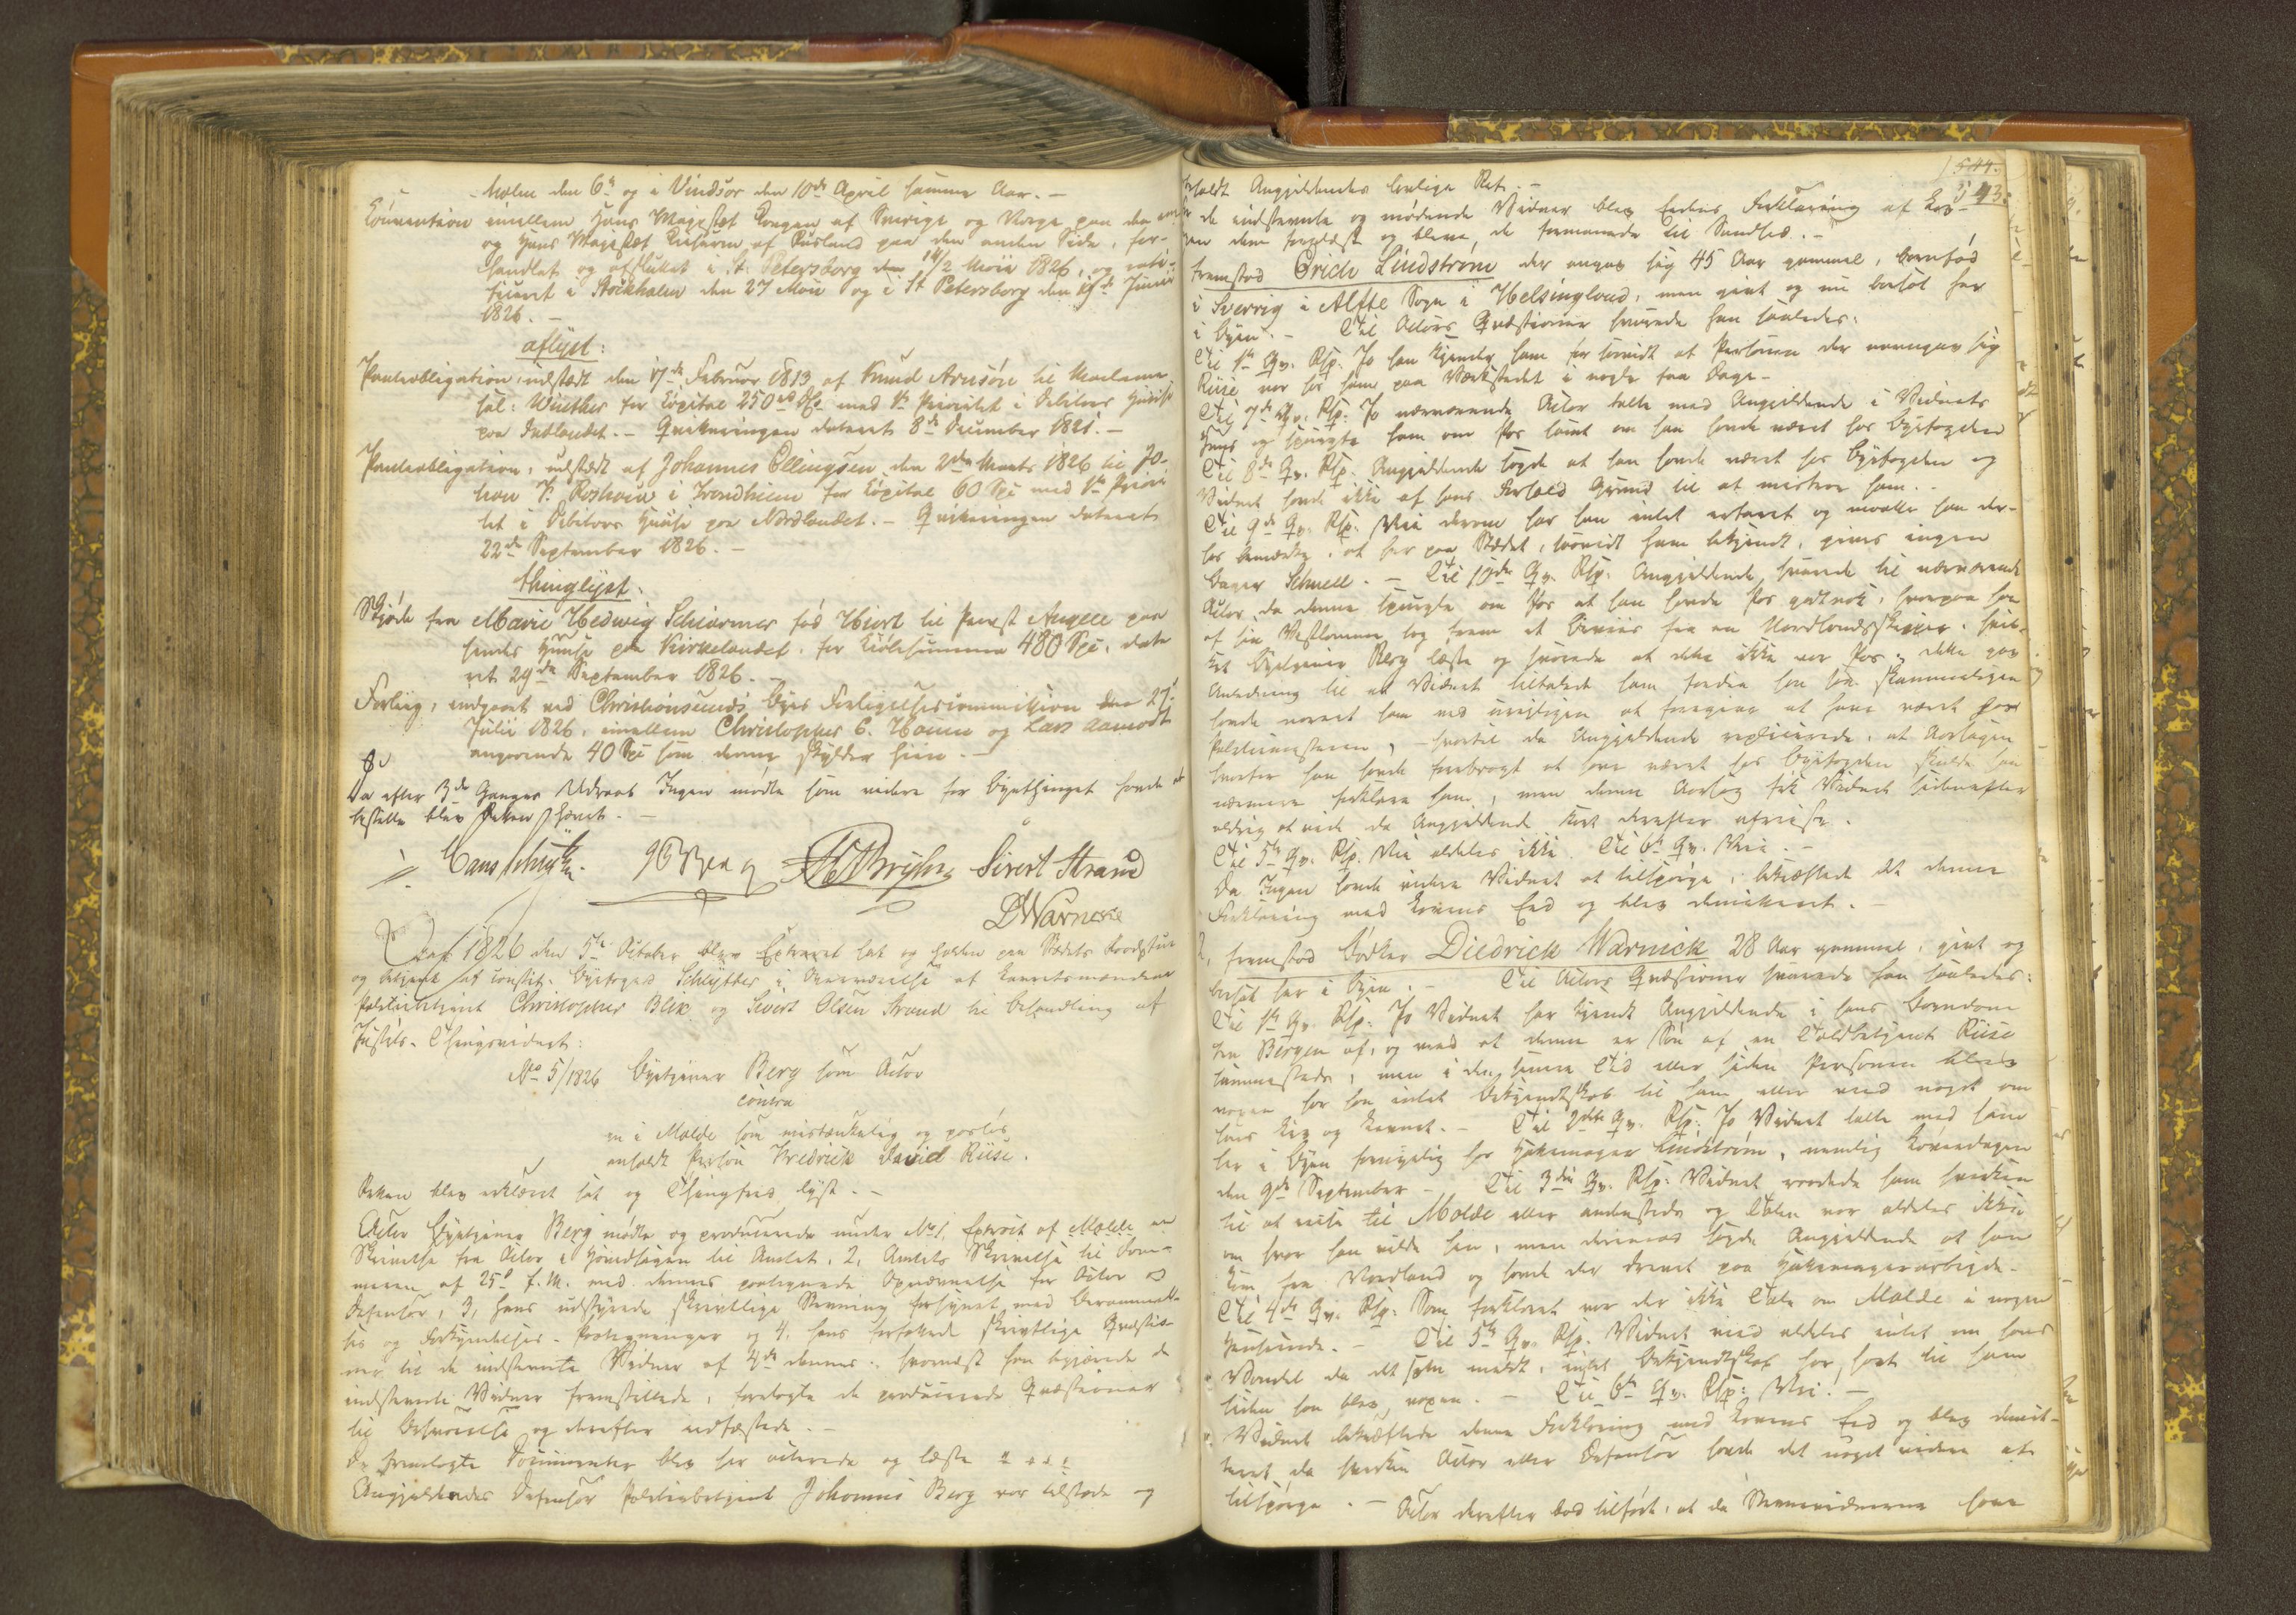 holm den 6te og i Vindsor den 10de April samme Aar. –
Convention imellem Hans Majestæt Kongen af Sverige og Norge paa den ene
og Hans Majestæt Keiseren af Rusland paa den anden Side, for-
handlet og afsluttet i St. Petersborg den 14/2 Maii 1826, og rati-
ficeret i Stockholm den 27 Maii og i St Petersborg den Junii
1826. –
aflyst:
Panteobligation, udstædt den 17de Februar 1813 af Knud Arnsön til Madame
sal: Wüther for Capital 250 med 1ste Prioritet i Debitors Huuse
paa Indlandet. – Qvitteringen dateret 8de December 1821. –
Panteobligation, udstædt af Johannes Ellingsen den 2den Marts 1826 til Jo-
han F. Roshow i Trondhiem for Capital 60 Spd med 1ste Priori-
tet i Debitors Huuse paa Nordlandet. – Qvitteringen dateret
22de September 1826. –
thinglyst:
Skjöde fra Marie Hedwig Schiermer föd Hiort til Provst Angell paa
hendes Huuse paa Kirkelandet, for Kiöbesummen 480 Spd, date-
ret 29de September 1826. –
Forliig, indgaaet ved Christiansunds Byes Forligelsescommission den 27de
Julii 1826, imellem Christopher C. Homme og Lars Aamodt
angaaende 40 Spd som denne skylder hiin. –
Da efter 3de Ganges Udraab Ingen mödte som videre for Bythinget havde at
bestille blev Retten hævet. –
Hans Schlytter. Berg Sivert Strand
D Warncke
Aar 1826 den 5te October blev Extraret sat og holden paa Stædets Raadstue
og betjent af constit. Byefoged Schlytter i Overværelse af Laurettsmændene
Politiebetjent Christopher Blix og Sivert Olsen Strand til Behandling af
Justits-Thingsvidnet:
No 5/1826 Byetjener Berg som Actor
contra
en i Molde som mistænkelig og paslös
anholdt Person Fredrick David Riise.
Retten blev erklæret sat og Thingfred lyst. –
Actor Byetjener Berg mödte og producerede under No 1, Extract af Molde
Skrivelse fra Actor i Hovedsagen til Amtet, 2, Amtets Skrivelse til Dom-
meren af 25de f. M. med dennes paategnede Opnævnelse for Actor og
Defensor, 3, hans udstyrede skrivtlige Stevning forsynet med Berammel-
ses og Forkyndelses-Paategninger og 4, hans forfattede skrivtlige Qvæstio-
ner til de indstevnte Vidner af 4de dennes: hvornæst han begjærede de
indstevnte Vidner fremstillede, forelagte de producerede Qvæstioner
til Besvarelse og derefter edfæstede. –
De fremlagte Documenter blev her acterede og læste
Angjældendes Defensor Politiebetjent Johannes Berg var tilstæde og
544.
543.
forholdt Angjældendes lovlige Ret. –
For de indstevnte og mödende Vidner blev Eedens Forklaring af Lov-
gen dem forelæst og bleve de formanede til Sandhed. –
fremstod Erich Lindström der angav sig 45 Aar gammel, barnföd
i Sverrig i Alfte Sogn i Helsingland, men givt og nu bosat her
i Byen. – Til Actors Qvæstioner svarede han saaledes:
Til 1ste Qv. Rsp. Jo han kjender ham for saavidt at Personen der navngav sig
Riise var hos ham paa Værkstedet i nogle faa Dage –
Til 7de Qv. Rsp. Jo nærværende Actor talte med Angjældende i Vidnets
Huus og spurgte ham om Pas samt om han havde været hos Byefogden
Til 8de Qv. Rsp. Angjældende sagde at han havde været hos Byefogden og
Vidnet havde ikke af hans Forhold Grund til at mistroe ham. –
Til 9de Qv. Rsp. Nei derom har han intet erfaret og maatte han der-
hos bemærke, at her paa Stædet, saavidt ham bekjendt, gives ingen
Bager Schnell. – Til 10de Qv. Rsp. Angjældende svarede til nærværende
Actor da denne spurgte om Pas at han havde Pas godt nok, hvorpaa han
af sin Vestlomme tog frem et Beviis fra en Nordlandsskipper, hvil-
ket Byetjener Berg læste og svarede at dette ikke var Pas, dette gav
Anledning til at Vidnet tiltalede ham fordi han saa skammeligen
havde narret ham ved urigtigen at foregive at have været hos
Politiemesteren, – hvortil da Angjældende replicerede, at Aarsagen
hvorfor han havde forebragt at have været hos Byefogden skulde han
nærmere forklare ham, men denne Aarsag fik Vidnet sidenefter
aldrig at vide da Angjældende kort derefter afreiste.
Til 5te Qv. Rsp. Nei aldeles ikke. Til 6te Qv. Nei. –
Da Ingen havde videre Vidnet at tilspörge, bekræftede det denne
Forklaring med Lovens Eed og blev demitteret. –
2, fremstod Bödker Diedrick Warnick 28 Aar gammel, givt og
bosat her i Byen. – Til Actors Qvæstioner svarede han saaledes:
Til 1ste Qv. Rsp. Jo Vidnet har kjendt Angjældende i hans Barndom
fra Bergen af, og veed at denne er Sön af en Toldbetjent Riise
sammestæds, men i den senere Tid eller siden Personen blev
voxen har han intet Bekjendtskab til ham eller veed noget om
hans Liv og Levnet. – Til 2den Qv. Rsp. Jo Vidnet talte med ham
her i Byen hos Hattemager Lindström, nemlig Löverdagen
den 9de September – Til 3die Qv. Rsp. Vidnet raadede ham hverken
til at reise til Molde eller andensteds og Talen var aldeles ikke
om hvor han vilde hen, men derimod sagde Angjældende at han
kom fra Nordland og havde der drevet paa Hattemagerarbeide.
Til 4de Qv. Rsp. Som forklaret var der ikke Tale om Molde i nogen
Henseende. – Til 5te Qv. Rsp. Vidnet veed aldeles intet om hans
Vandel da det som meldt, intet Bekjendtskab har havt til ham
siden han blev voxen. – Til 6te Qv. Rsp. Nei. –
Vidnet bekræftede denne Forklaring med Lovens Eed og blev demit-
teret da hverken Actor eller Defensor havde det noget videre at
tilspörge. – Actor derefter bad tilfört, at da Stevnevidnerne have